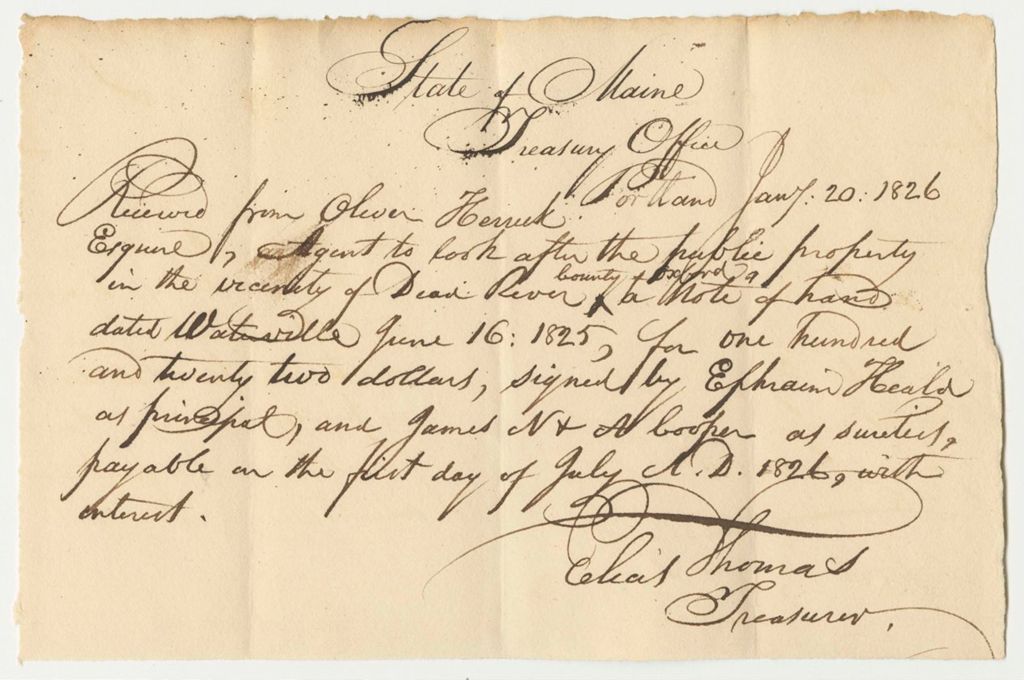 State of Maine
Treasury Office
Portland Jany. 20: 1826
Received from Oliver Herrick
Esquire, Agent to look after the public property
in the vicinity of Dead River, County of Oxford, a Note of hand
dated Waterville June 16: 1825, for one hundred
and twenty two dollars, signed by Ephraim Heald
as principal, and James N & A Cooper as sureties,
payable on the first day of July A.D. 1826, with
interest.
Elias Thomas
Treasurer.